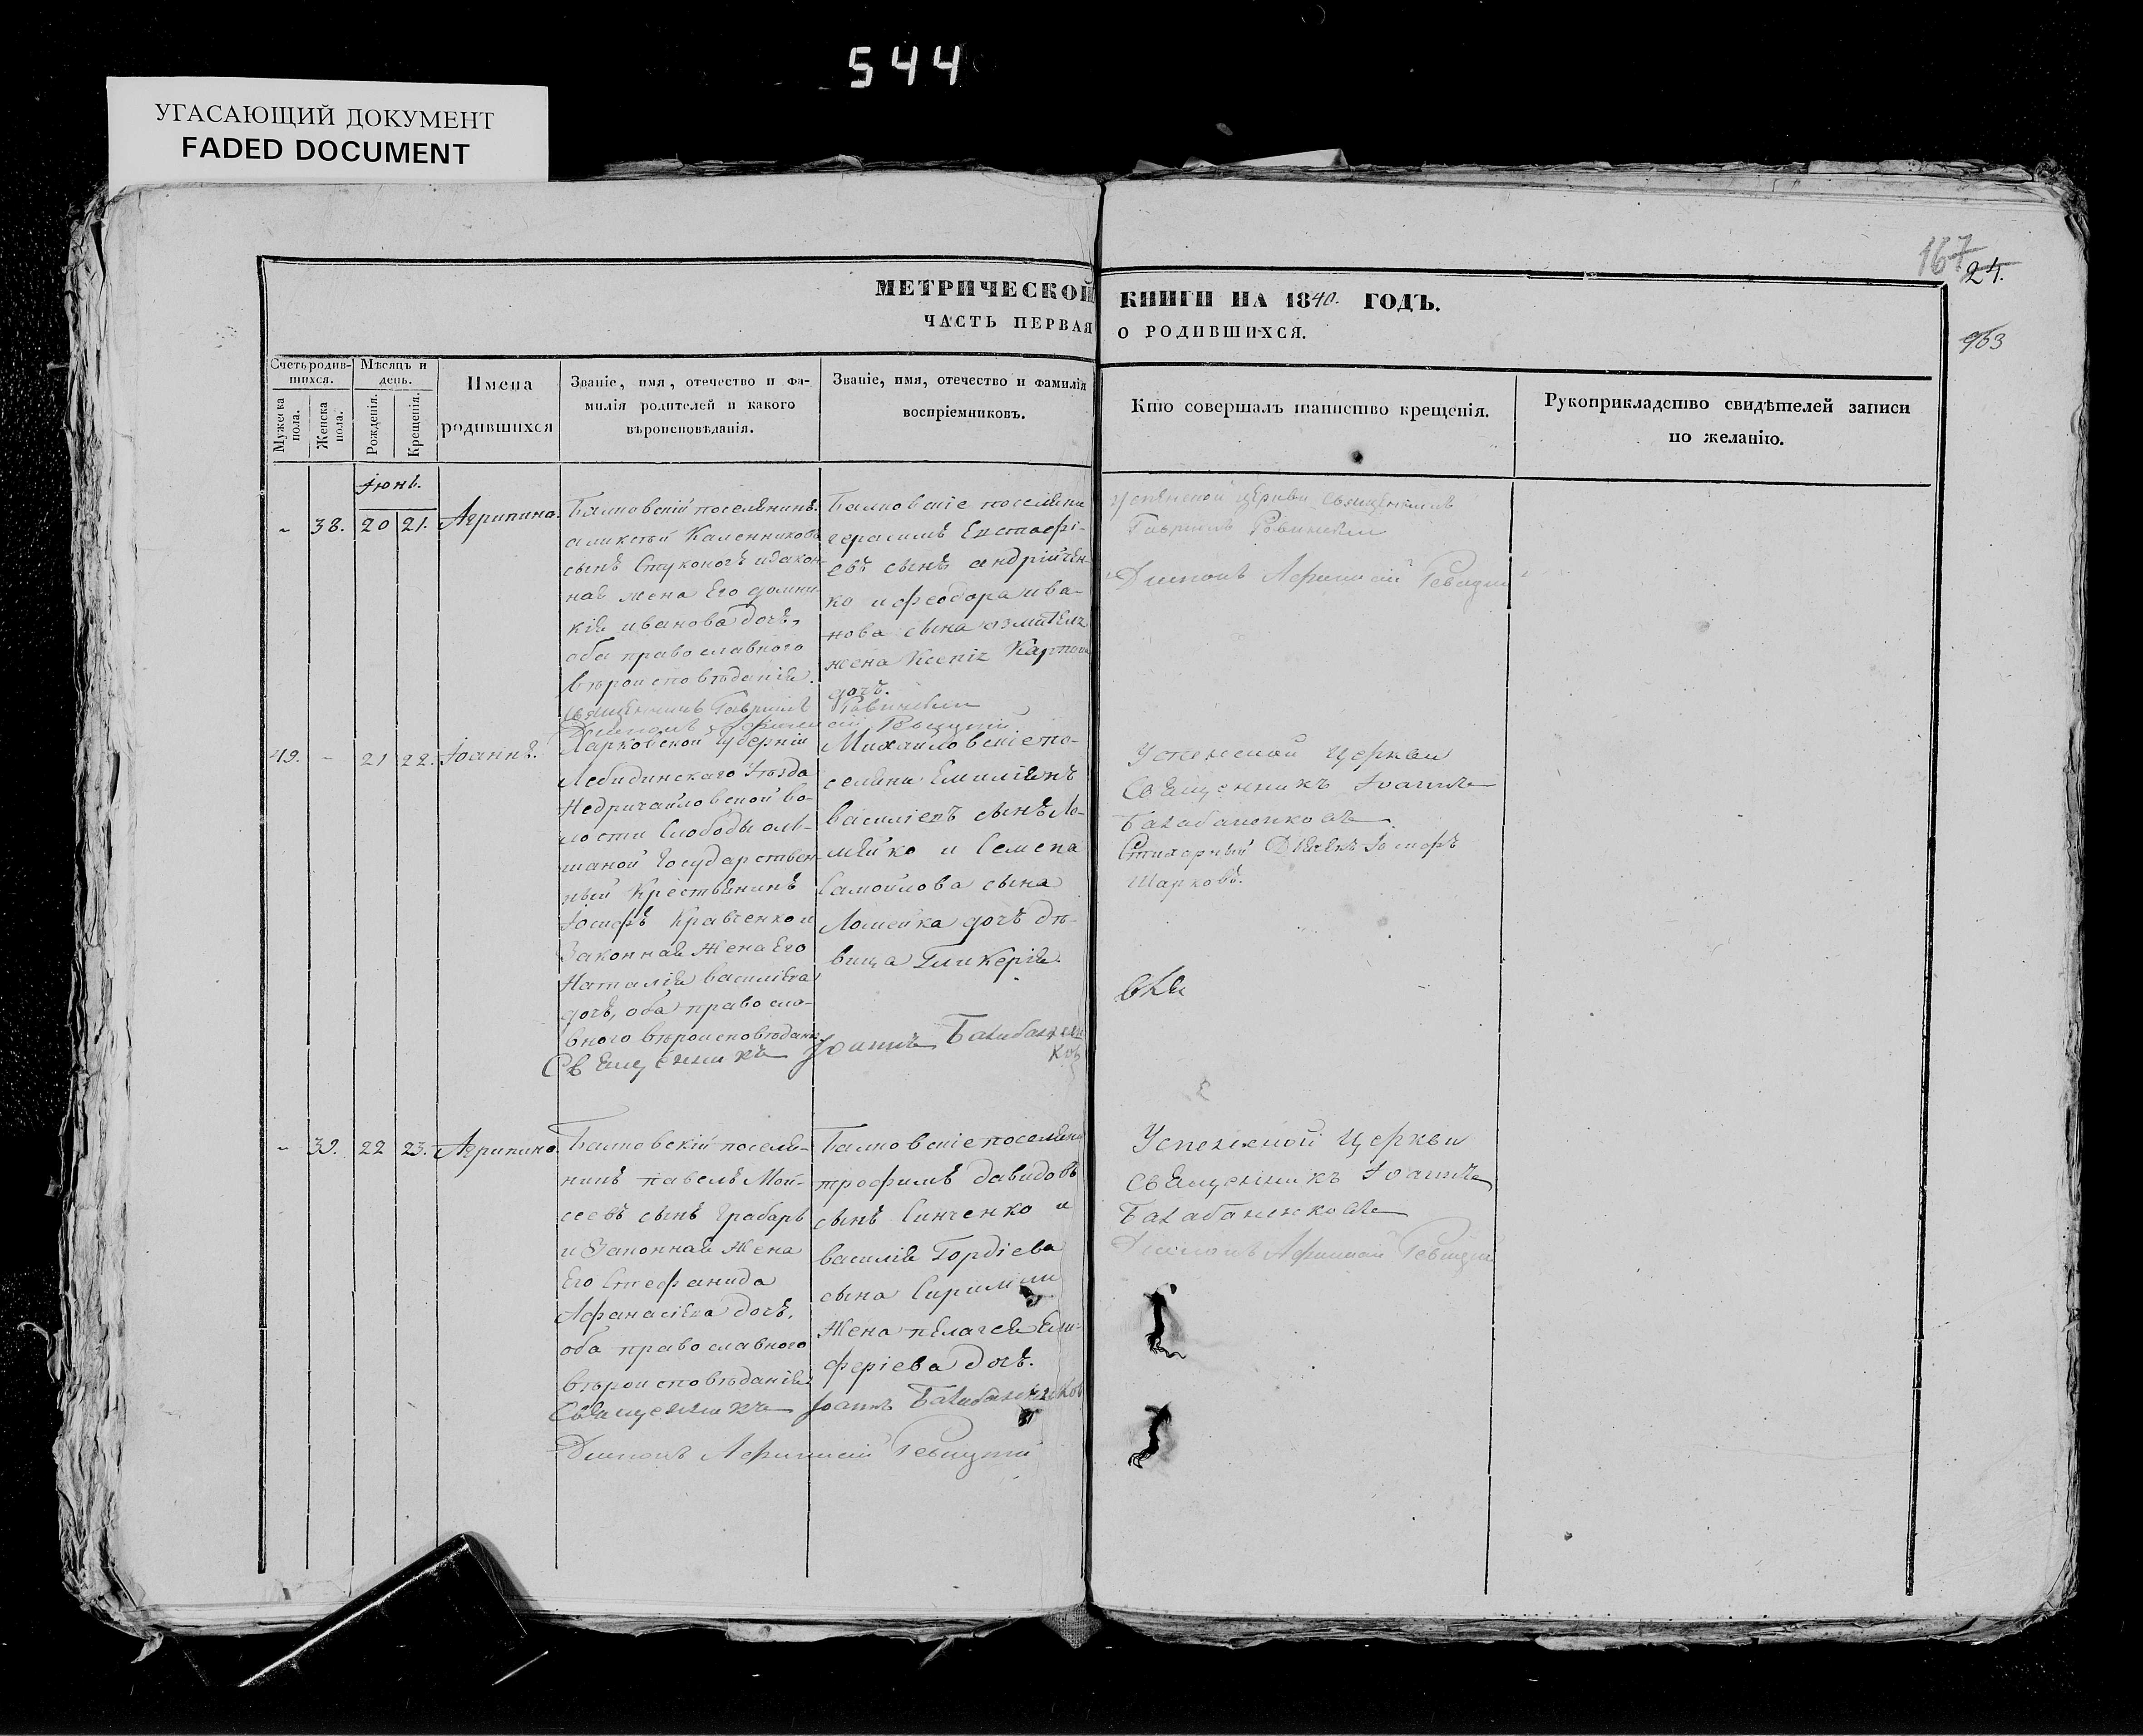 544
УГАСАЮЩИЙ ДОКУМЕНТ
FADED DOCUMENT
167
24.
963
МЕТРИЧЕСКОЙ КНИГИ НА 1840. ГОДЪ.
ЧАСТЬ ПЕРВАЯ О РОДИВШИХСЯ.
Счетъ родив-
шихся.
Мужеска пола.
Женска пола.
Мѣсяцъ и
день.
Рожденія.
Крещенія.
Имена
родившихся
Званіе, имя, отечество и фа-
милія родителей и какого
вѣроисповѣданія.
Званіе, имя, отечество и фамилія
воспріемниковъ.
Кто совершалъ таинство крещенія.
Рукоприкладство свидѣтелей записи
по желанію.
Іюнь.
38. 20 21. Агрипина.
Балковскій поселянинъ
сынъ и закон-
ная жена Его домни-
кія иванова дочь,
оба православного
вѣроисповѣданія.
Балковскіе поселяни
герасимъ Евстафі-
евъ сынъ андрійчен-
ко и феодора ива-
нова сына
жена Ксенія Карпова
дочь.
Успенской Церкви Священникъ
Гавриилъ
Священникъ Гавриилъ
49. - 21 22. Іоаннъ.
Харковской Губерніи
Лебидинскаго Уѣзда
Недригайловской во-
лости Слободы оль-
шаной Государствен-
ный Крестьянинъ
Іосифъ Кравченко и
Законная Жена Его
Наталія василіева
дочь, оба правосла-
вного вѣроисповѣдані
Михайловскіе по-
селяни Емиліянъ
василіевъ сынъ Ло-
мейко и Семена
Самойлова сына
Ломейка дочь дѣ-
вица Гликерія.
Успенской Церкви
Священникъ Іоаннъ
Балабаненковъ
Стихарный Дьячекъ Іосифъ
Шарковъ.
Священникъ Іоаннъ Балабанен
ковъ
39. 22 23. Агрипина
Балковскій поселя-
нинъ павелъ Мой-
сеевъ сынъ Грабарь
и Законная Жена
Его Стефанида
Афанасіева дочь,
оба православного
вѣроисповѣданія
Балковскіе поселяни
трофимъ давидовъ
сынъ Синченко и
василія Гордіева
сына
Жена пелагея Ели-
феріева дочь.
Успенской Церкви
Священникъ Іоаннъ
Балабаненковъ
Священникъ Іоаннъ Балабаненковъ